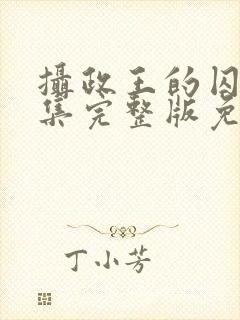 攝政王的囚
集完整版免
丁小芳